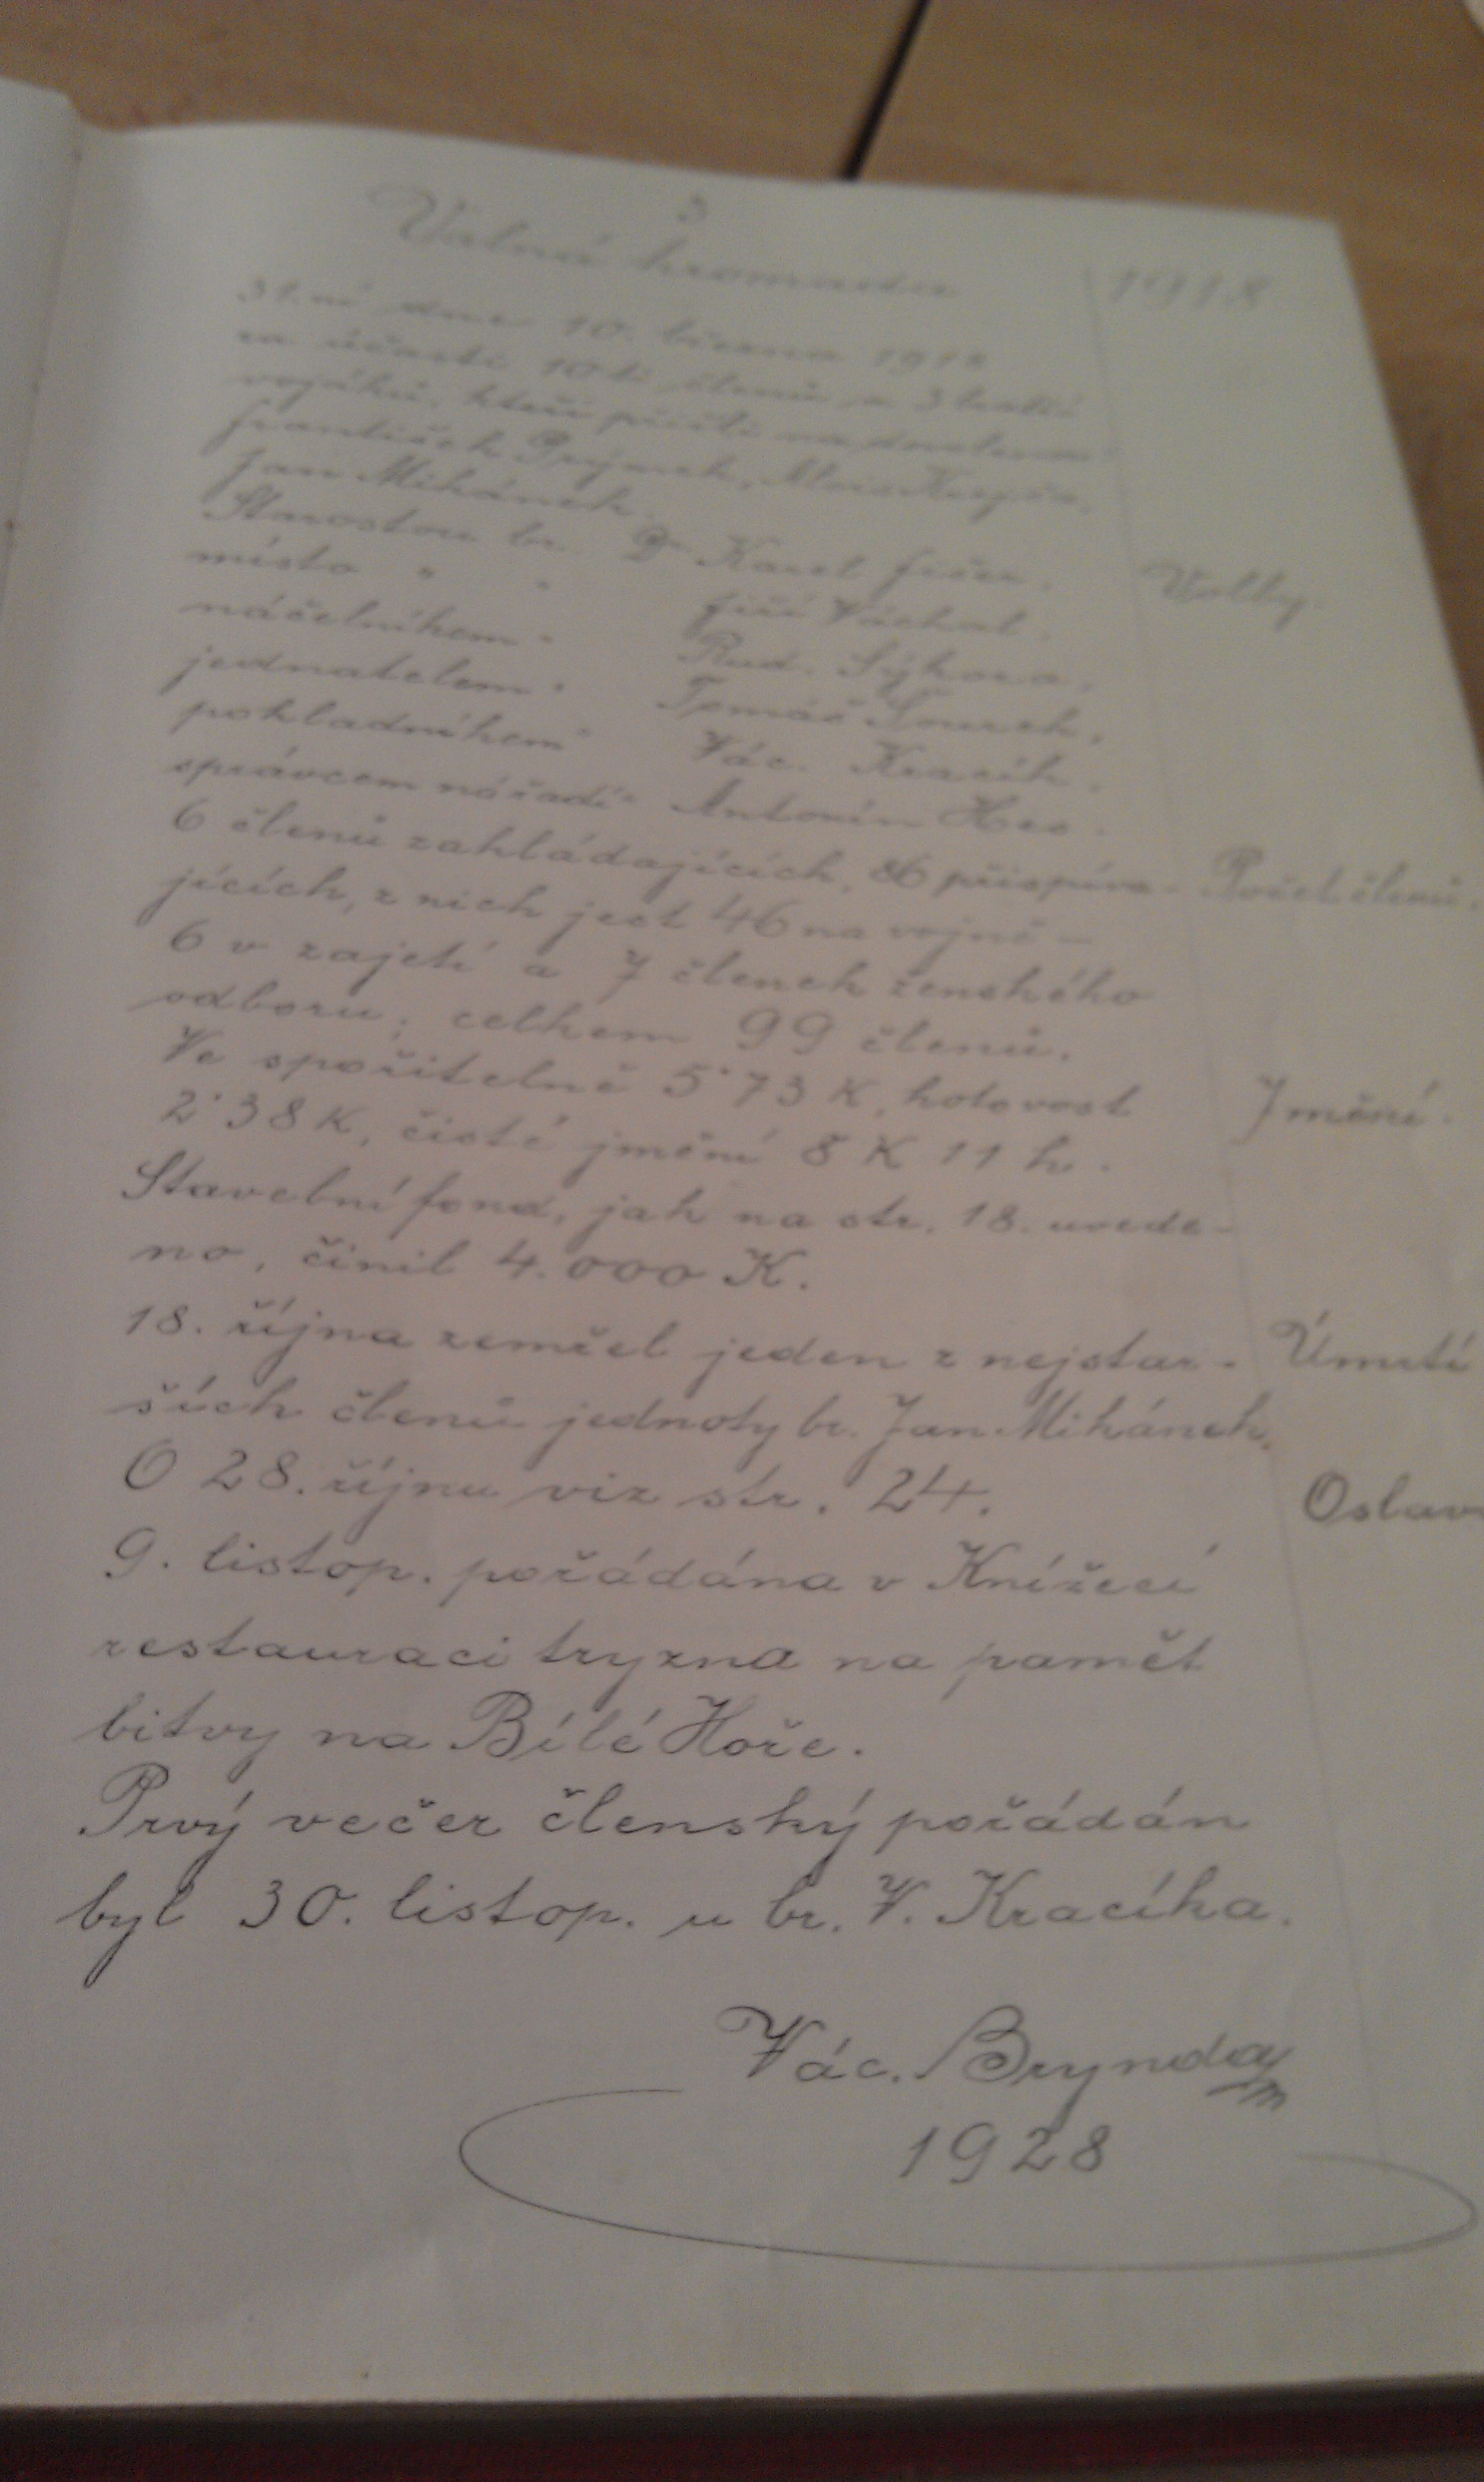 3
Valná hromada 1918
31.ní dne 10. března 1918
za účasti 10ti členů a 3 bratří
vojáků, kteří přišli na dovolenou
František Prýmek, Alois
Jan Mihánek.
Starostou br. Dr Karel Fišer. Volby.
místo " " Jiří Váchal.
náčelníkem " Rud. Sýkora.
jednatelem " Tomáš Sourek.
pokladníkem " Vác. Kracík.
správcem nářadí " Antonín
6 členů zakládajících, 86 přispíva- Počet členů.
jících, z nich jest 46 na vojně –
6 v zajetí a 7 členek ženského
odboru, celkem 99 členů.
Ve spořitelně 5·73 K, hotovost Jmění.
2·38 K, čisté jmění 8 K 11 h.
Stavební fond, jak na str. 18. uvede-
no, činil 4.000 K.
18. října zemřel jeden z nejstar- Úmrtí
ších členů jednoty br. Jan Mihánek.
O 28. říjnu viz str. 24. Oslav
9. listop. pořádána v Knížecí
restauraci tryzna na pamět
bitvy na Bílé Hoře.
Prvý večer členský pořádán
byl 30. listop. u br. V. Kracíka.
Vác. Brynda
1928